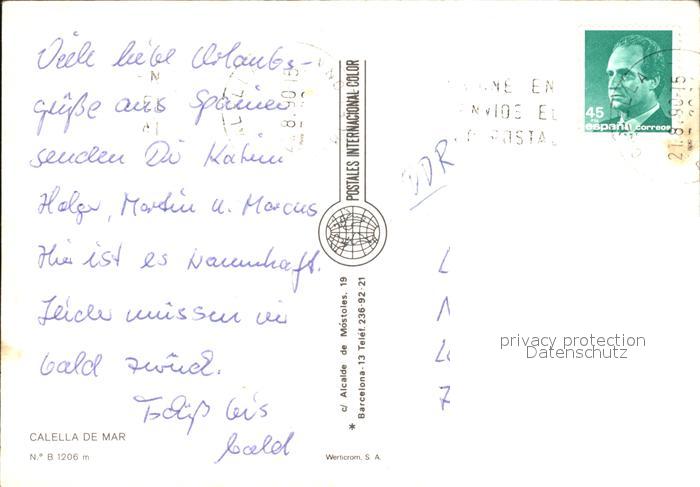 Viele liebe Urlaubs-
grüße aus Spanien
senden Dir Katrin
Holger, Martin u. Marcus
Hier ist es traumhaft.
Leider müssen wir
bald zurück.
Tschüß bis
bald
CALELLA DE MAR
N.º B 1206 m
POSTALES INTERNACIONAL COLOR
c/ Alcalde de Móstoles, 19
Barcelona-13 Teléf. 236-92-21
Werticrom, S. A.
DDR
45
PTA
españa correos
21.8.90-15
privacy protection
Datenschutz